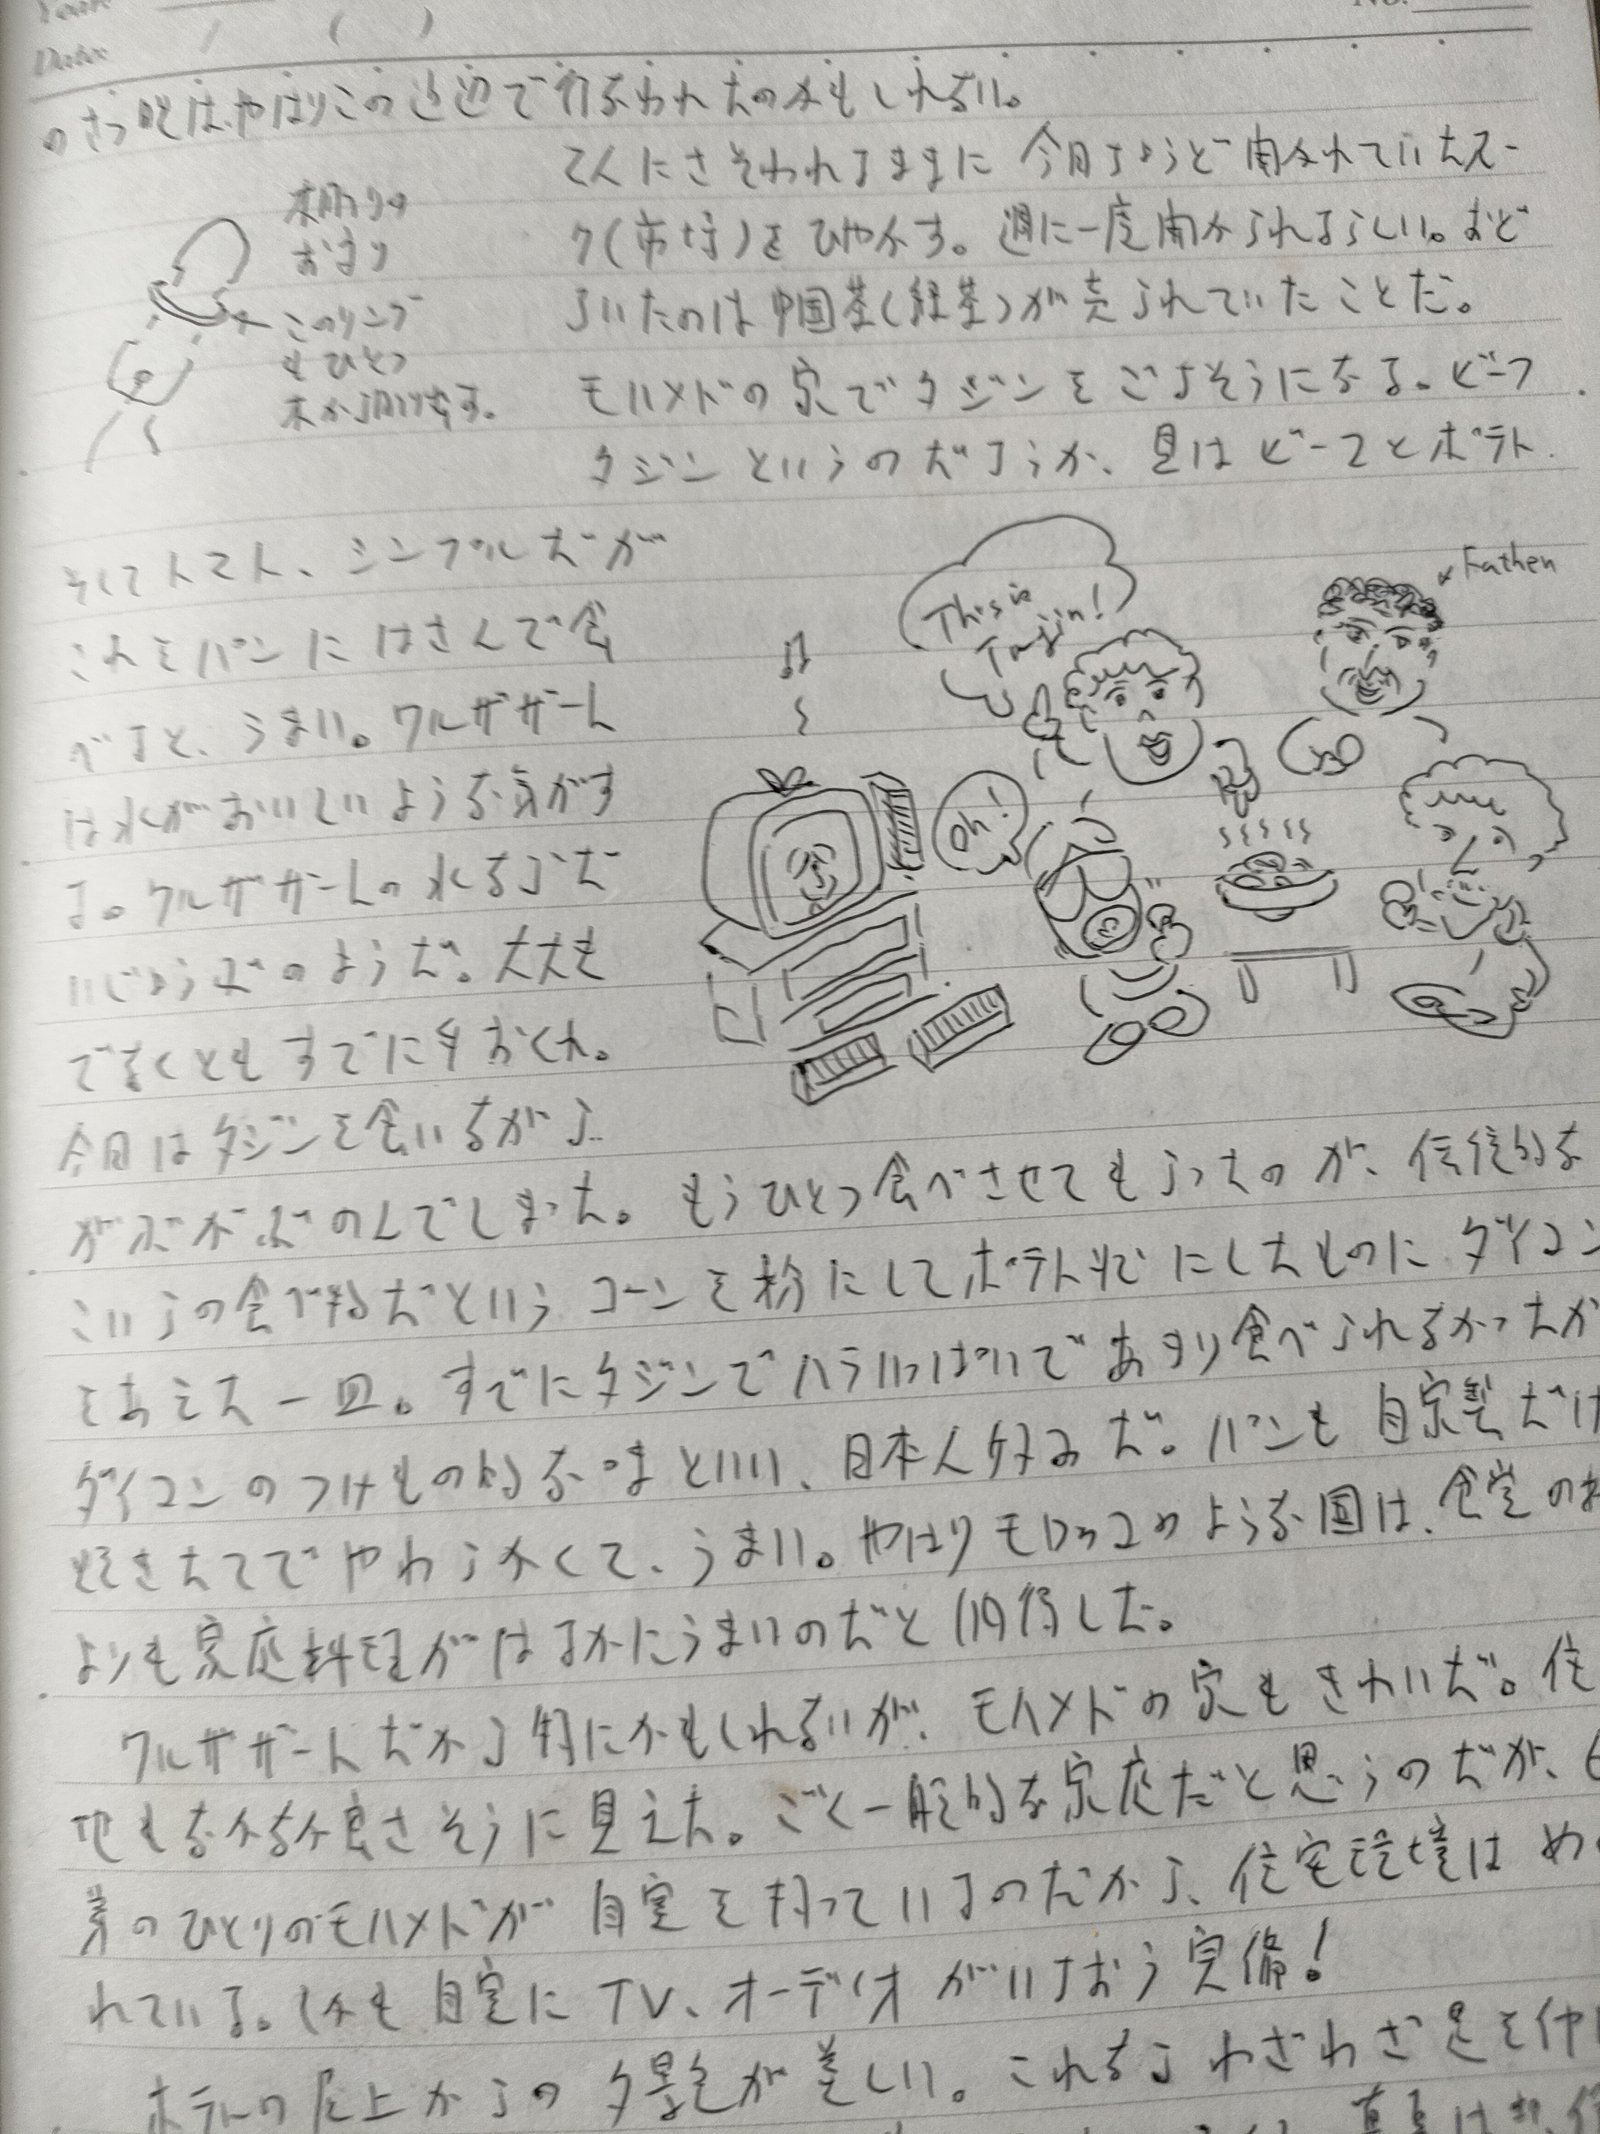 Year
No.
Date
のさつ映はやはりこの近辺で行なわれたのかもしれない。
てんにさそわれるままに 今日ちょうど開かれていたスー
ク(市場)をひやかす。週に一度開かれるらしい。おど
ろいたのは中国茶(緑茶)が売られていたことだ。
モハメドの家でタジンをごちそうになる。ビーフ
タジンというのだろうか、具はビーフとポテト
木彫りの
おまり
このリング
もひとつ
木から削り出す。
そしてトマト、シンプルだが
これをパンにはさんで食
べると、うまい。ワルザザート
は水がおいしいような気がす
る。ワルザザートの水なら だ
いじょうぶのようだ。大丈も
でなくともすでに手おくれ。
今日はタジンを食いながら
This is Tagjin!
Father
Oh!
ガボガボのんでしまった。もうひとつ食べさせてもらったのが、伝統的な
こいらの食べ物だという コーンを粉にしてポテト状にしたものに ダイコン
をあえた一皿。すでにタジンでハラいっぱいであまり食べられなかったが
ダイコンのつけもの的な味といい、日本人好みだ。パンも自家製だけ
焼きたてでやわらかくて、うまい。やはりモロッコのような国は、食堂の
よりも家庭料理がはるかにうまいのだと納得した。
ワルザザートだから特にかもしれないが、モハメドの家もきれいだ。住
地もなかなか良さそうに見えた。ごく一般的な家庭だと思うのだが、6
弟のひとりのモハメドが 自室を持っているのだから、住宅環境は め
れている。しかも 自室に TV、オーディオ がいちおう完備!
ホテルの屋上からの 夕景色が美しい。これなら わざわざ足を伸